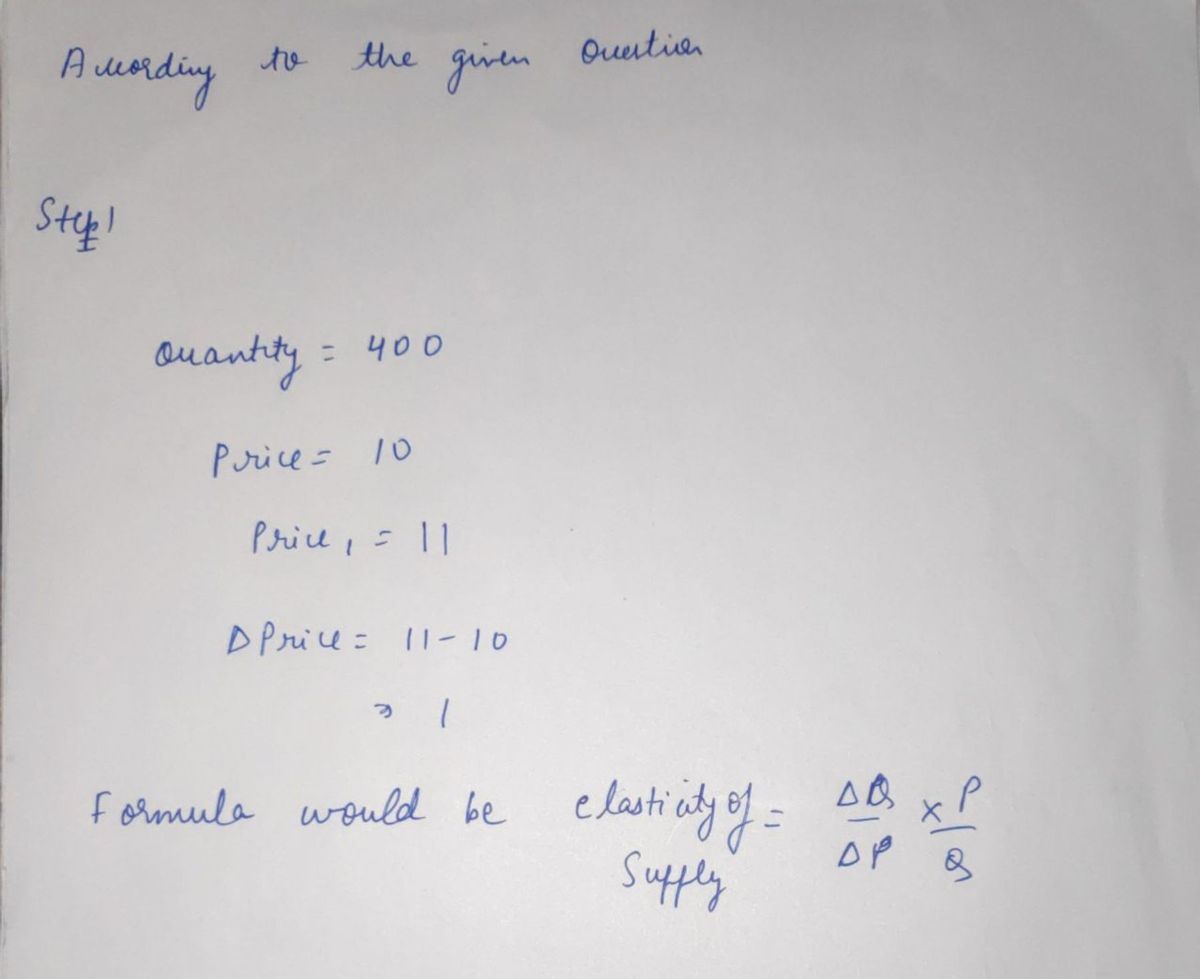 According to the given Question
Step 1
Quantity = 400
Price = 10
Price, = 11
Δ Price = 11 - 10
= 1
Formula would be elasticity of Supply = ΔQ/ΔP × P/Q